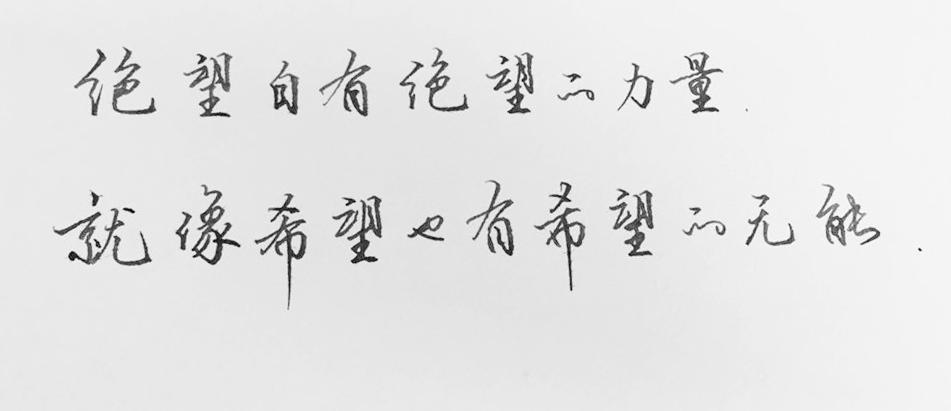 绝望自有绝望的力量.
就像希望也有希望的无能.